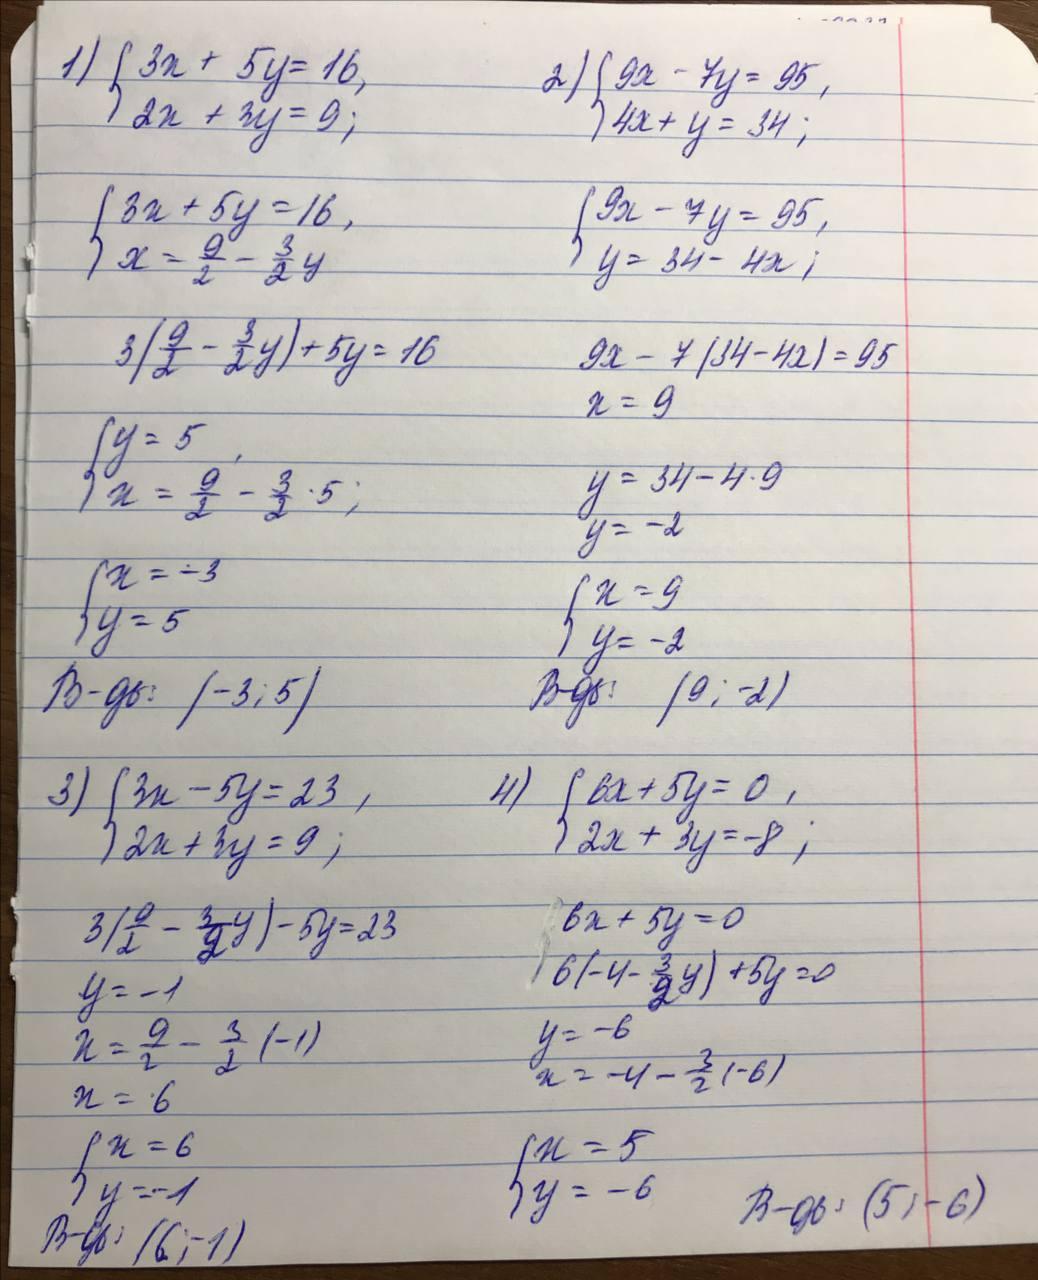 1) { 3x + 5y = 16,
2x + 3y = 9;
{ 3x + 5y = 16,
x = 9/2 - 3/2 y
3(9/2 - 3/2 y) + 5y = 16
{ y = 5,
x = 9/2 - 3/2 · 5;
{ x = -3
y = 5
В-дь: (-3; 5)
2) { 9x - 7y = 95,
4x + y = 34;
{ 9x - 7y = 95,
y = 34 - 4x;
9x - 7(34 - 4x) = 95
x = 9
y = 34 - 4 · 9
y = -2
{ x = 9
y = -2
В-дь: (9; -2)
3) { 3x - 5y = 23,
2x + 3y = 9;
3(9/2 - 3/2 y) - 5y = 23
y = -1
x = 9/2 - 3/2 (-1)
x = 6
{ x = 6
y = -1
В-дь: (6; -1)
4) { 6x + 5y = 0,
2x + 3y = -8;
6x + 5y = 0
6(-4 - 3/2 y) + 5y = 0
y = -6
x = -4 - 3/2 (-6)
{ x = 5
y = -6
В-дь: (5; -6)